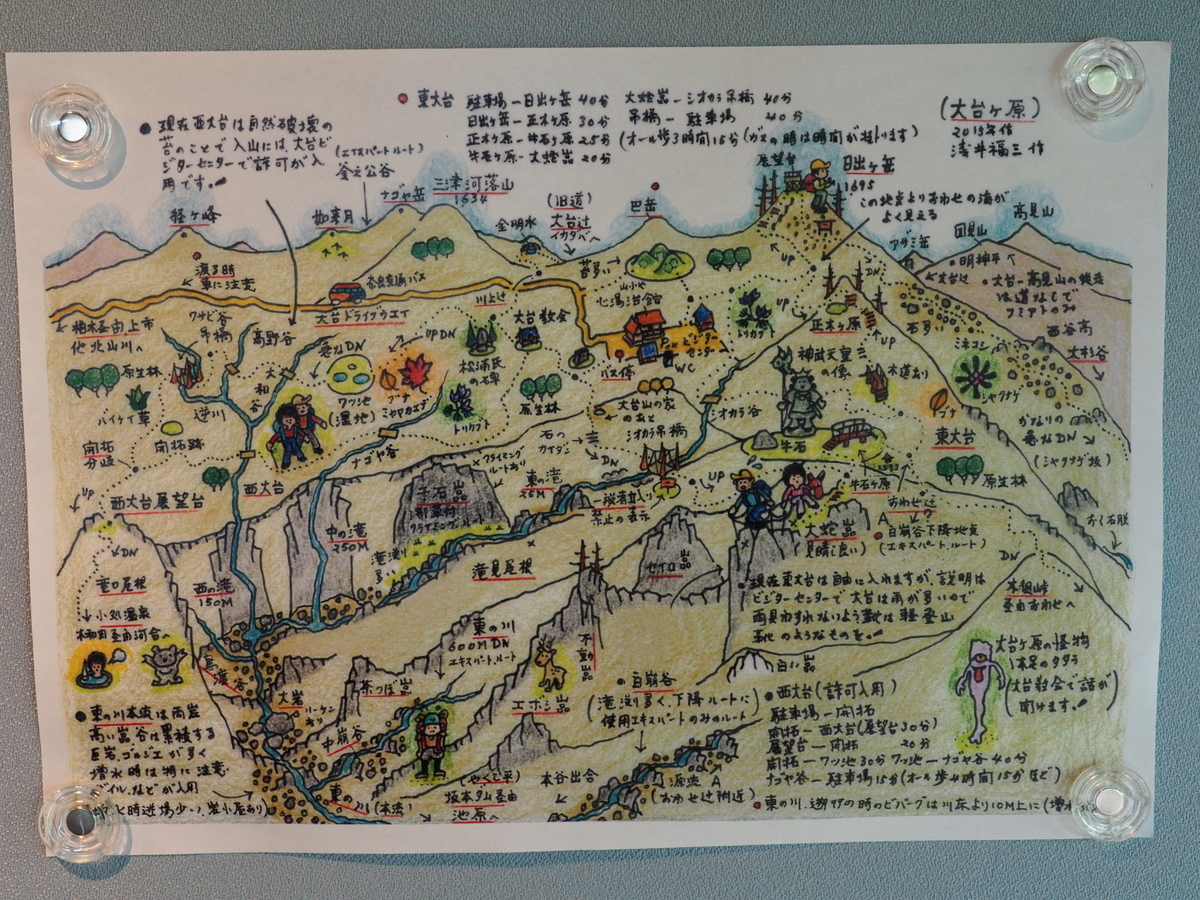 ●東大台 駐車場ー日出ヶ岳 40分 大蛇嵓ーシオカラ吊橋 40分
日出ヶ岳ー正木ヶ原 30分 吊橋ー駐車場 40分
正木ヶ原ー牛石ヶ原 25分 (オール歩3時間15分(ガスの時は時間が掛ります)
牛石ヶ原ー大蛇嵓 20分
(大台ヶ原)
2019年作
浅井福三 作
●現在西大台は自然破壊の
苔のことで入山には、大台ビ
ジターセンターで許可が入
用です。
(エキスパートルート)
釜之公谷
ナゴヤ岳
三津河落山
1654
経ヶ峰
如来月
金明水
(旧道)
大台辻
イカダバへ
巴岳
展望台
日出ヶ岳
1695
この地点よりおわせの海が
よく見える
アザミ岳
国見山
高見山
明神平へ
大台辻
●大台ー高見山の縦走
は道なしで
西谷高
大杉谷
渡る時
車に注意
奈良交通バス
大台ドライブウエイ
苔多い
山小や
心湯治館
川上辻
大台教会
ビジター
センター
バス停
WC
UP
トリカブト
DN
正木ヶ原
石多い
ネコシ
シャクナゲ
柏木経由上市
他北山川へ
ワサビ谷
吊橋
高野谷
急なDN
UP DN
松浦氏
の名碑
神武天皇
の像
木道あり
ブナ
原生林
バイケイ草
逆川
大和谷
ワッツ池
(湿地)
ブナ
ミヤマカエデ
トリカブト
原生林
大台山の家
のあと
シオカラ谷
シオカラ吊橋
牛石
東大台
原生林
かなりの
急なDN
(シャクナゲ坂)
開拓
分岐
開拓跡
ナゴヤ谷
石の
カイダン
DN
UP
西大台展望台
西大台
クライミング
ルートあり
千石嵓
クライミングルート
東の滝
25M
一般者立入り
禁止の表示
UP
牛石ヶ原
おわせ辻
A
●白崩谷下降地点
(エキスパートルート)
大蛇嵓
(見晴し良い)
DN
中の滝
250M
滝渕り
多い
滝見尾根
セイロ嵓
DN
竜口尾根
小処温泉
西の滝
150M
東の川
600M DN
エキスパートルート
不動嵓
●現在東大台は自由に入れますが、説明は
ビジターセンターで大台は雨が多いので
雨具わすれないよう靴は軽登山
ものようなものを。
木組峠
経由おわせへ
白い嵓
大岩
茶つぼ嵓
エボシ嵓
白崩谷
(滝渕り多く、下降ルートに
使用エキスパートのみのルート)
大台ヶ原の怪物
1本足のタタラ
(大台教会で話が
聞けます。)
●東の川本流は両岸
高い嵓谷は累積する
巨岩ゴルジュが多く
増水時は特に注意
ザイルなどが入用
中崩谷
東の川(本流)
坂本ダム経由
池原へ
本谷出合
源流 A
(おわせ辻附近)
●西大台(許可入用)
駐車場ー開拓
開拓ー西大台(展望台30分)
展望台ー開拓 20分
開拓ーワッツ池30分 ワッツ池ーナゴヤ谷40分
ナゴヤ谷ー駐車場15分(オール歩4時間15分ほど)
●東の川、遡行の時のビバークは川床より10M上に(増水